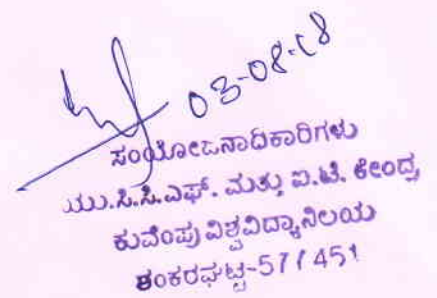 03-08-18
ಸಂಯೋಜನಾಧಿಕಾರಿಗಳು
ಯು.ಸಿ.ಸಿ.ಎಫ್. ಮತ್ತು ಐ.ಟಿ. ಕೇಂದ್ರ,
ಕುವೆಂಪು ವಿಶ್ವವಿದ್ಯಾನಿಲಯ
ಶಂಕರಘಟ್ಟ-577451